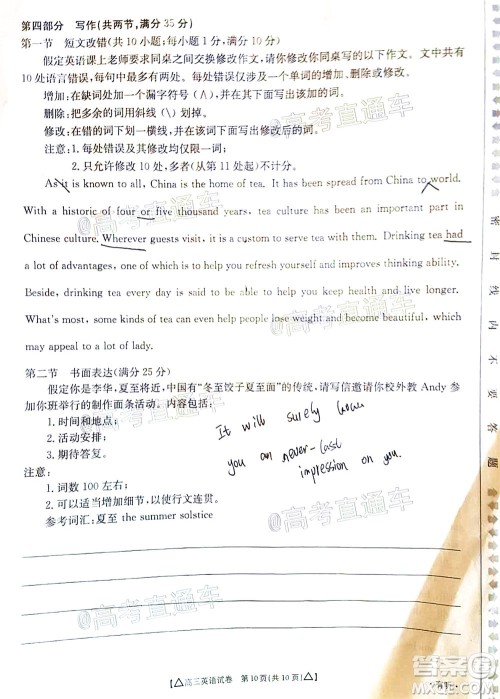 第四部分 写作(共两节,满分 35 分)
第一节 短文改错(共 10 小题;每小题 1 分,满分 10 分)
假定英语课上老师要求同桌之间交换修改作文,请你修改你同桌写的以下作文。文中共有
10 处语言错误,每句中最多有两处。每处错误仅涉及一个单词的增加、删除或修改。
增加:在缺词处加一个漏字符号(∧),并在其下面写出该加的词。
删除:把多余的词用斜线(\)划掉。
修改:在错的词下划一横线,并在该词下面写出修改后的词。
注意:1. 每处错误及其修改均仅限一词;
2. 只允许修改 10 处,多者(从第 11 处起)不计分。
As it is known to all, China is the home of tea. It has been spread from China to world.
With a historic of four or five thousand years, tea culture has been an important part in
Chinese culture. Wherever guests visit, it is a custom to serve tea with them. Drinking tea had
a lot of advantages, one of which is to help you refresh yourself and improves thinking ability.
Beside, drinking tea every day is said to be able to help you keep health and live longer.
What's more, some kinds of tea can even help you lose weight and become beautiful, which
may appeal to a lot of lady.
第二节 书面表达(满分 25 分)
假定你是李华,夏至将近,中国有“冬至饺子夏至面”的传统,请写信邀请你校外教 Andy 参
加你班举行的制作面条活动。内容包括:
1. 时间和地点;
2. 活动安排;
3. 期待答复。
注意:
1. 词数 100 左右;
2. 可以适当增加细节,以使行文连贯。
参考词汇:夏至 the summer solstice
It will surely leave
you an never-last
impression on you.
【△高三英语试卷 第 10 页(共 10 页)△】
密封线内不要答题
@高考直通车
@高考直通车
@高考直通车
@高考直通车